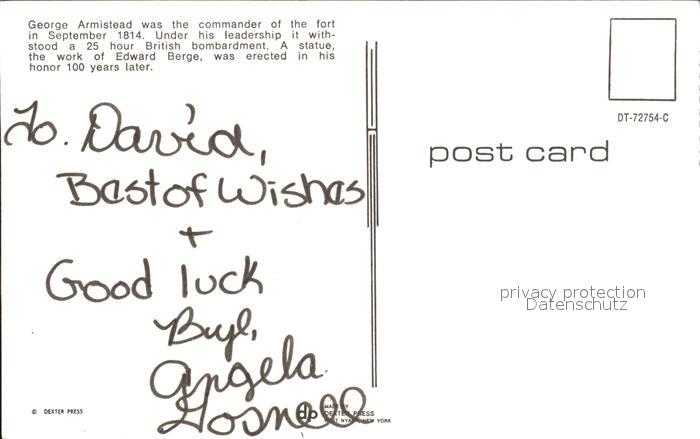 George Armistead was the commander of the fort
in September 1814. Under his leadership it with-
stood a 25 hour British bombardment. A statue,
the work of Edward Berge, was erected in his
honor 100 years later.
DT-72754-C
post card
To. David,
Best of Wishes
+
Good luck
Angela
Gosnell
privacy protection
Datenschutz
© DEXTER PRESS
dp
MADE BY
DEXTER PRESS
WEST NYACK, NEW YORK